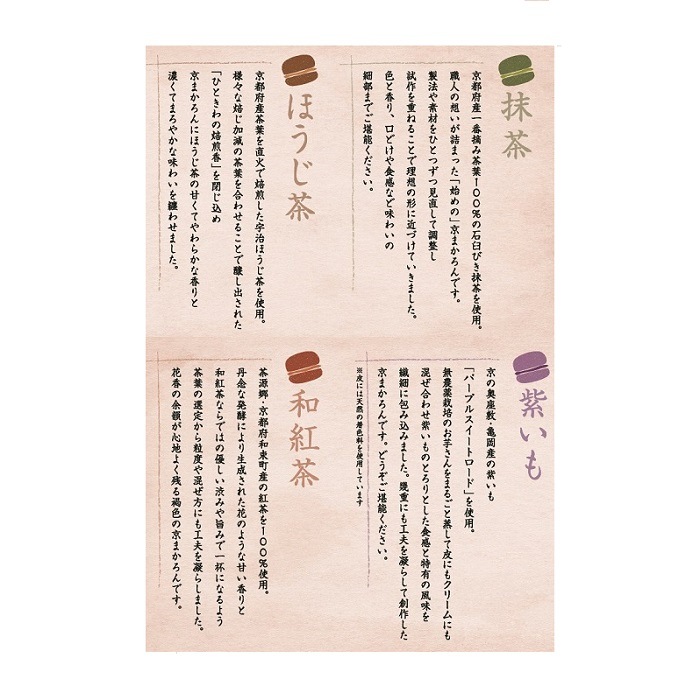 抹茶
京都府産一番摘み茶葉100%の石臼びき抹茶を使用。
職人の想いが詰まった「始めの」京まかろんです。
製法や素材をひとつずつ見直して調整し
試作を重ねることで理想の形に近づけていきました。
色と香り、口どけや食感など味わいの
細部までご堪能ください。
ほうじ茶
京都府産茶葉を直火で焙煎した宇治ほうじ茶を使用。
様々な焙じ加減の茶葉を合わせることで醸し出された
「ひときわの焙煎香」を閉じ込め
京まかろんにほうじ茶の甘くてやわらかな香りと
濃くてまろやかな味わいを纏わせました。
紫いも
京の奥座敷・亀岡産の紫いも
「パープルスイートロード」を使用。
無農薬栽培のお芋さんをまるごと蒸して皮にもクリームにも
混ぜ合わせ紫いものとろりとした食感と特有の風味を
繊細に包み込みました。幾重にも工夫を凝らして創作した
京まかろんです。どうぞご堪能ください。
※皮には天然の着色料を使用しています
和紅茶
茶源郷・京都府和束町産の紅茶を100%使用。
丹念な発酵により生成された花のような甘い香りと
和紅茶ならではの優しい渋みや旨みで一杯になるよう
茶葉の選定から粒度や混ぜ方にも工夫を凝らしました。
花香の余韻が心地よく残る褐色の京まかろんです。